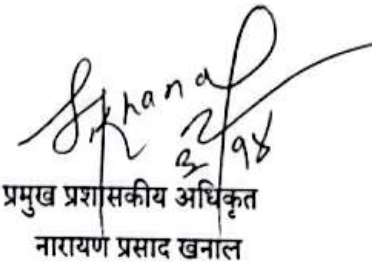 प्रमुख प्रशासकीय अधिकृत
नारायण प्रसाद खनाल